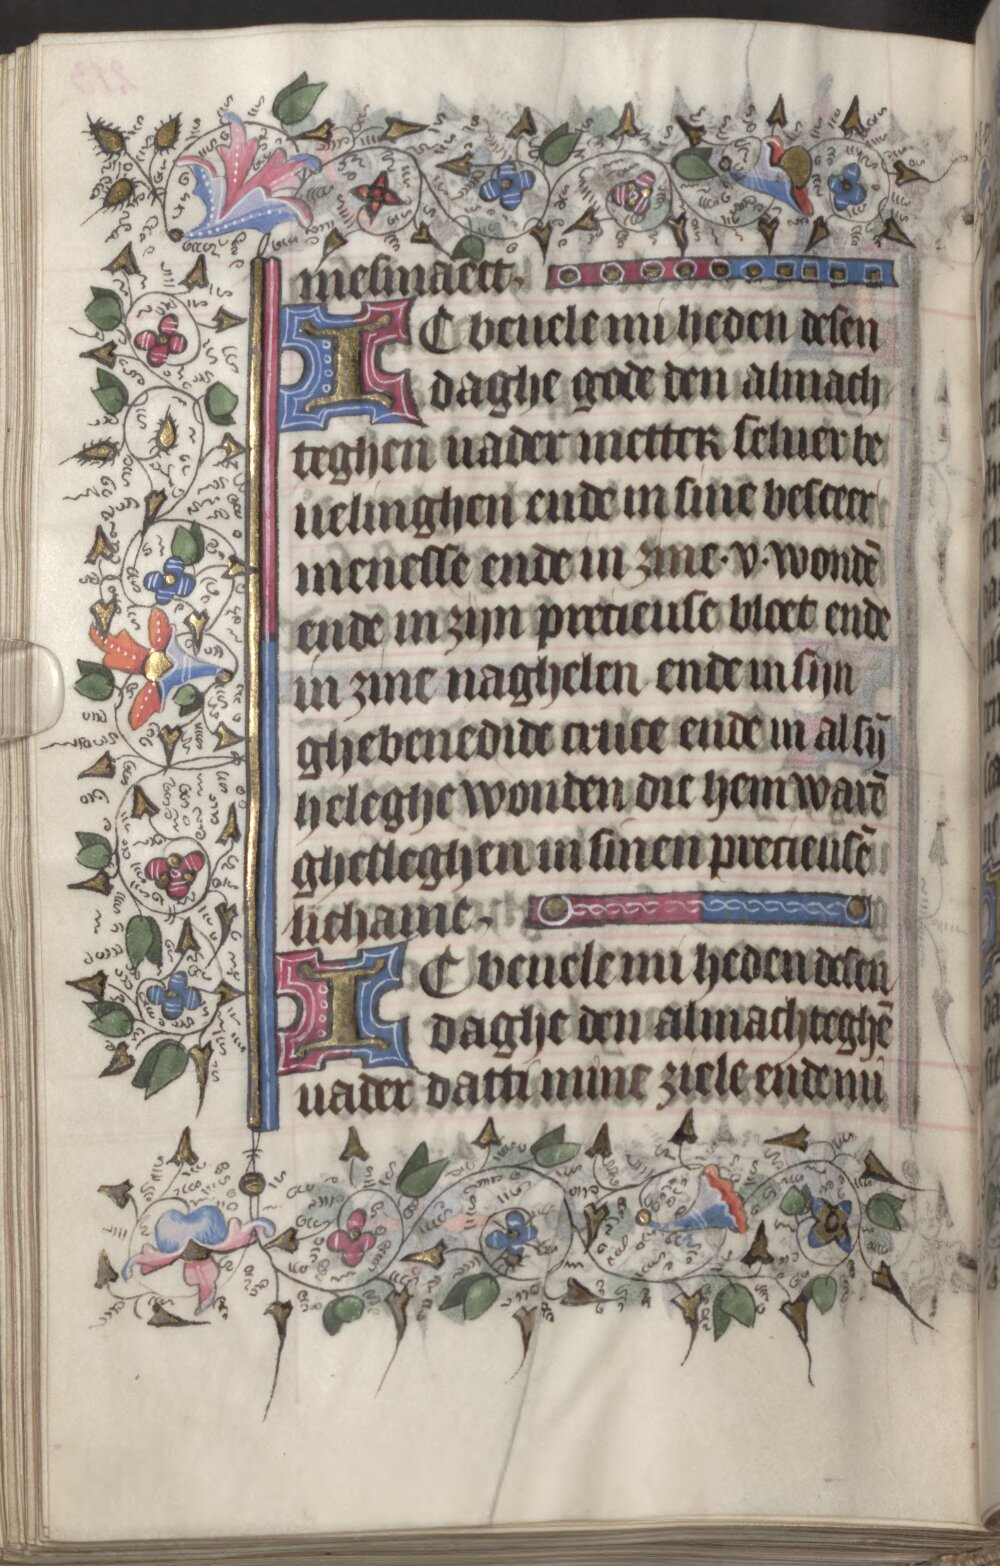 mesmaect.
IC beuele mi heden desen
daghe gode den almach
teghen uader metter seluer be
uelinghen ende in sine besceer
menesse ende in zine .v. wondē
ende in zijn precieuse bloet ende
in zine naghelen ende in sijn
ghebenedide cruce ende in al sij̄
heleghe wonden die hem warē
ghesleghen in sinen precieusē
lichame.
IC beuele mi heden desen
daghe den almachteghē
uader datti mine ziele ende mi